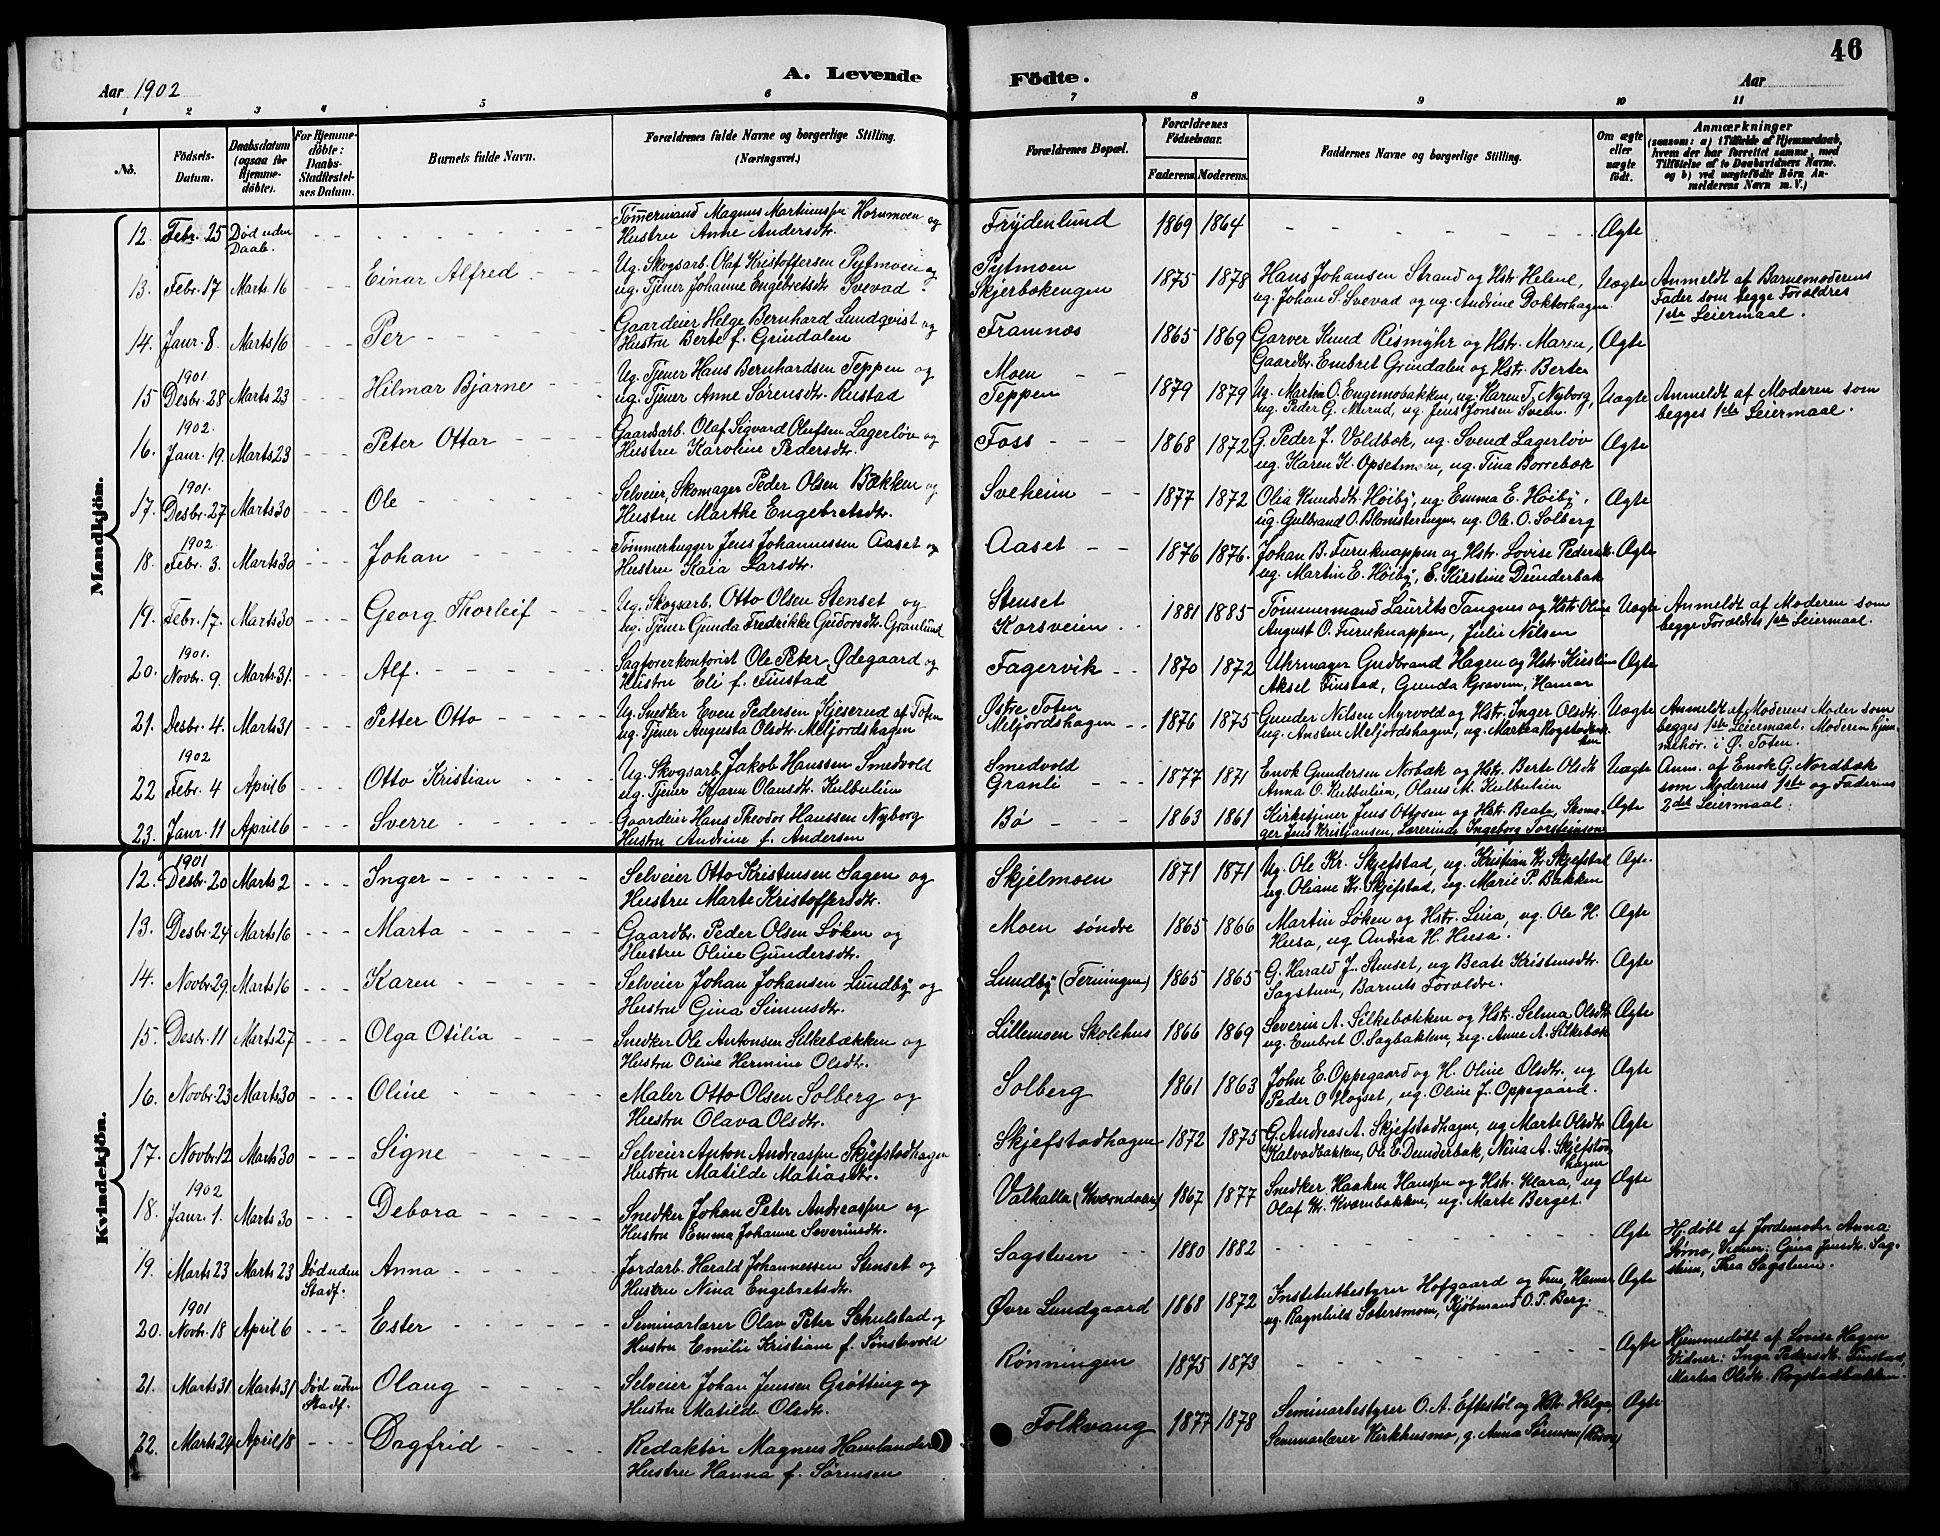 Aar 1902
A. Levende
1 2 3 4 5 6
No.
Födsels-Datum.
Daabsdatum (ogsaa for Hjemme-döbte).
For Hjemme-döbte: Daabs-Stadfestel-ses Datum.
Barnets fulde Navn.
Forældrenes fulde Navne og borgerlige Stilling.
(Næringsvei.)
Mandkjön.
12. Febr. 25 Død uden Daab. - - - - - Tømmermand Magnus Martinussen Hornmoen og
Hustru Anne Andersdtr.
13. Febr. 17 Marts 16 - - - Einar Alfred - - - Ug. Skogsarb. Olaf Kristoffersen Pytmoen og
ug. Tjener Johanne Engebretsdtr Svevad
14. Janr. 8. Marts 16 - - - Per - - - Gaardeier Helge Bernhard Lundqvist og
Hustru Berte f. Grindalen
1901.
15 Desbr. 28 Marts 23 - - - Hilmar Bjarne - - Ug. Tjener Hans Bernhardsen Teppen og
ug. Tjener Anne Sørensdtr. Rustad
1902.
16. Janr. 19. Marts 23 - - - Peter Ottar - - - Gaardsarb. Olaf Sigvard Olufsen Lagerløv og
Hustru Karoline Pedersdtr.
1901.
17. Desbr. 27 Marts 30 - - - Ole - - - Selveier, Skomager Peder Olsen Bækken og
Hustru Marthe Engebretsdtr.
1902
18. Febr. 3. Marts 30 - - - Johan - - - Tømmerhugger Jens Johannessen Aaset og
Hustru Kaia Larsdtr.
19. Febr. 17. Marts 30 - - - Georg Thorleif - - Ug. Skogsarb. Otto Olsen Stenset og
ug. Tjener Gunda Fredrikke Gudorsdtr. Granlund
1901.
20. Novbr. 9. Marts 31. - - - Alf. - - - Sagførerkontorist Ole Peter Ødegaard og
Hustru Eli f. Finstad
21. Desbr. 4. Marts 31 - - - Petter Otto - - - Ug. Snedker Even Pedersen Kjeserud af Toten
ug. Tjener Augusta Olsdtr. Meljordshagen
1902
22 Febr. 4 April 6 - - - Otto Kristian - - - Ug. Skogsarb. Jakob Hanssen Smedvold
ug. Tjener Karen Olausdtr. Kulbulien
23. Janr. 11 April 6 - - - Sverre - - - Gaardeier Hans Theodor Hanssen Nyborg
Hustru Andrine f. Andersen
Kvindekjön.
1901
12. Desbr. 20 Marts 2 - - - Inger - - - Selveier Otto Kristensen Sagen og
Hustru Marte Kristoffersdtr.
13. Desbr. 24 Marts 16 - - - Marta - - - Gaardbr. Peder Olsen Løken og
Hustru Oline Gundersdtr.
14. Novbr. 29. Marts 16 - - - Karen - - - Selveier Johan Johansen Lundby og
Hustru Gina Simensdtr.
15. Desbr. 11 Marts 27 - - - Olga Otilia - - - Snedker Ole Antonsen Silkebækken og
Hustru Oline Hermine Olsdtr.
16. Novbr. 23 Marts 30 - - - Oline - - - Maler Otto Olsen Solberg og
Hustru Olava Olsdtr.
17. Novbr. 12 Marts 30 - - - Signe - - - Selveier Anton Andreassen Skjefstadhagen
Hustru Matilde Matiasdtr.
1902
18. Janr. 1. Marts 30 - - - Debora - - - Snedker Johan Peter Andreassen og
Hustru Emma Johanne Severinsdtr.
19. Marts 23 Marts 23 Død uden Stadf. Anna - - - Jordarb. Harald Johannessen Stenset og
Hustru Nina Engebretsdtr.
1901
20. Novbr. 18 April 6 - - - Ester - - - Seminarlærer Olav Peter Schulstad og
Hustru Emilie Kristiane f. Tønstevold
21. Marts 31 Marts 31 Død uden Stadf. Olaug - - - Selveier Johan Jenssen Grøtting og
Hustru Matilde Olsdtr.
22. Marts 24 April 18 - - - Dagfrid - - - Redaktør Magnus Hamlander
Hustru Hanna f. Sørensen
46
Födte.
Aar
7 8 9 10 11
Forældrenes Bopæl.
Forældrenes Födselsaar.
Faderens. Moderens.
Faddernes Navne og borgerlige Stilling.
Om ægte eller uægte födt.
Anmærkninger
(saasom: a) i Tilfælde af Hjemmedaab, hvem der har forrettet samme, med Tilföielse af to Daabsvidners Navne. og b) ved uægtefödte Börn Anmelderens Navn m. V.)
Frydenlund 1869 1864 - - - - - Ægte
Pytmoen
Skjerbækengen 1875 1878 Hans Johansen Strand og Hstr. Helene,
ug. Johan S. Svevad og ug. Andrine Doktorhagen. Uægte Anmeldt af Barnemoderens
Fader som begge Forældres
1ste Leiermaal.
Framnæs 1865 1869 Garver Knud Rismyhr og Hstr. Maren,
Gaardbr. Embret Grindalen og Hstr. Berte Ægte
Moen - -
Teppen 1879 1879 Ug. Martin O. Engemobakken, ug. Karen T. Nyborg,
ug. Peder G. Mund, ug. Jens Jonsen Sveen. Uægte Anmeldt af Moderen som
begges 1ste Leiermaal.
Foss - - - 1868 1872 G. Peder J. Voldbæk, ug. Svend Lagerløv
ug. Karen K. Opsetmoen, ug. Tina Borrebæk Ægte
Sveheim - - 1877 1872 Olia Knudsdtr. Høiby, ug. Emma E. Høiby,
ug. Gulbrand O. Blomsterengen, ug. Ole O. Solberg Ægte
Aaset - - 1876 1876. Johan B. Furuknappen og Hstr. Lovise Pedersdtr.
ug. Martin E. Høiby, E. Kirstine Dunderbæk Ægte
Stenset
Korsveien - - 1881 1885 Tømmermand Laurits Tangnes og Hstr. Oline
August O. Furuknappen, Julie Nilsen Uægte Anmeldt af Moderen som
begge Forældres 1ste Leiermaal.
Fagervik - - 1870 1872 Uhrmager Gudbrand Hagen og Hstr. Kirstine
Aksel Finstad, Gunda Graven, Hamar Ægte
Østre Toten
Meljordshagen - - 1876 1875 Gunder Nilsen Myrvold og Hstr. Inger Olsdtr.
ug. Ansten Meljordshagen, ug. Martea Rogstadbakken Uægte Anmeldt af Moderens Moder som
begges 1ste Leiermaal. Moderen hjem-
mehør. i Ø. Toten.
Smedvold
Granli - - 1877 1871 Enok Gundersen Norbæk og Hstr. Berte Olsdtr
Anna O. Kulbulien, Olaus M. Kulbulien Uægte Anm. af Enok G. Nordbæk
som Moderens 1ste og Faderens
2det Leiermaal.
Bø - - - 1863 1861 Kirketjener Jens Ottosen og Hstr. Beate, Skoma-
ger Jens Kristiansen, Lærerinde Ingeborg Torsteinson Ægte
Skjelmoen 1871 1871 Ug. Ole Kr. Skjefstad, ug. Kristian Kr. Skjefstad
ug. Oliane Kr. Skjefstad, ug. Marie P. Bakken Ægte.
Moen søndre 1865 1866 Martin Løken og Hstr. Lina, ug. Ole H.
Husa, ug Andrea H. Husa. Ægte
Lundby (Terningen) 1865 1865 G. Harald J. Stenset, ug Beate Kristensdtr.
Sagstuen, Barnets Forældre. Ægte
Lillemoen Skolehus 1866 1869 Severin A. Silkebækken og Hstr. Selma Olsdtr
ug. Embret O. Sagbakken, ug. Anne A. Silkebæk Ægte
Solberg 1861 1863 John E. Oppegaard og H. Oline Olsdtr. ug
Peder O Hogset, ug. Oline J. Oppegaard. Ægte
Skjefstadhagen 1872 1875 G. Andreas A. Skjefstadhagen, ug Marte Olsdtr
Kalvodbakken, Ole E. Dunderbæk, Nina A. Skjefstad-
hagen Ægte
Valhalla (Kverndalen) 1867 1877 Snedker Haaken Hanssen og Hstr. Klara, ug
Olaf Kr. Kværnbakken, ug. Marte Berget. Ægte
Sagstuen - - 1880 1882 - - - - - Ægte Hj. døbt af Jordemoder Anna
Sømo, Vidner: Gina Jensdtr. Sag-
stuen, Thea Sagstuen.
Øvre Lundgaard 1868 1872 Institutbestyrer Hofgaard og Frue, Hamar
ug. Ragnhild Sætersmoen, Kjøbmand O. P. Berg. Ægte
Rønningen 1875 1873 - - - - - Ægte Hjemmedøbt af Lovise Hagen
Vidner: Inga Pedersdtr. Finstad,
Martea Olsdtr. Rogstadbakken.
Folkvang 1877 1878 Seminarbestyrer O. A. Eftestøl og Hstr. Helga
Seminarlærer Kirkhusmo, g. Anna Sørensen Ægte